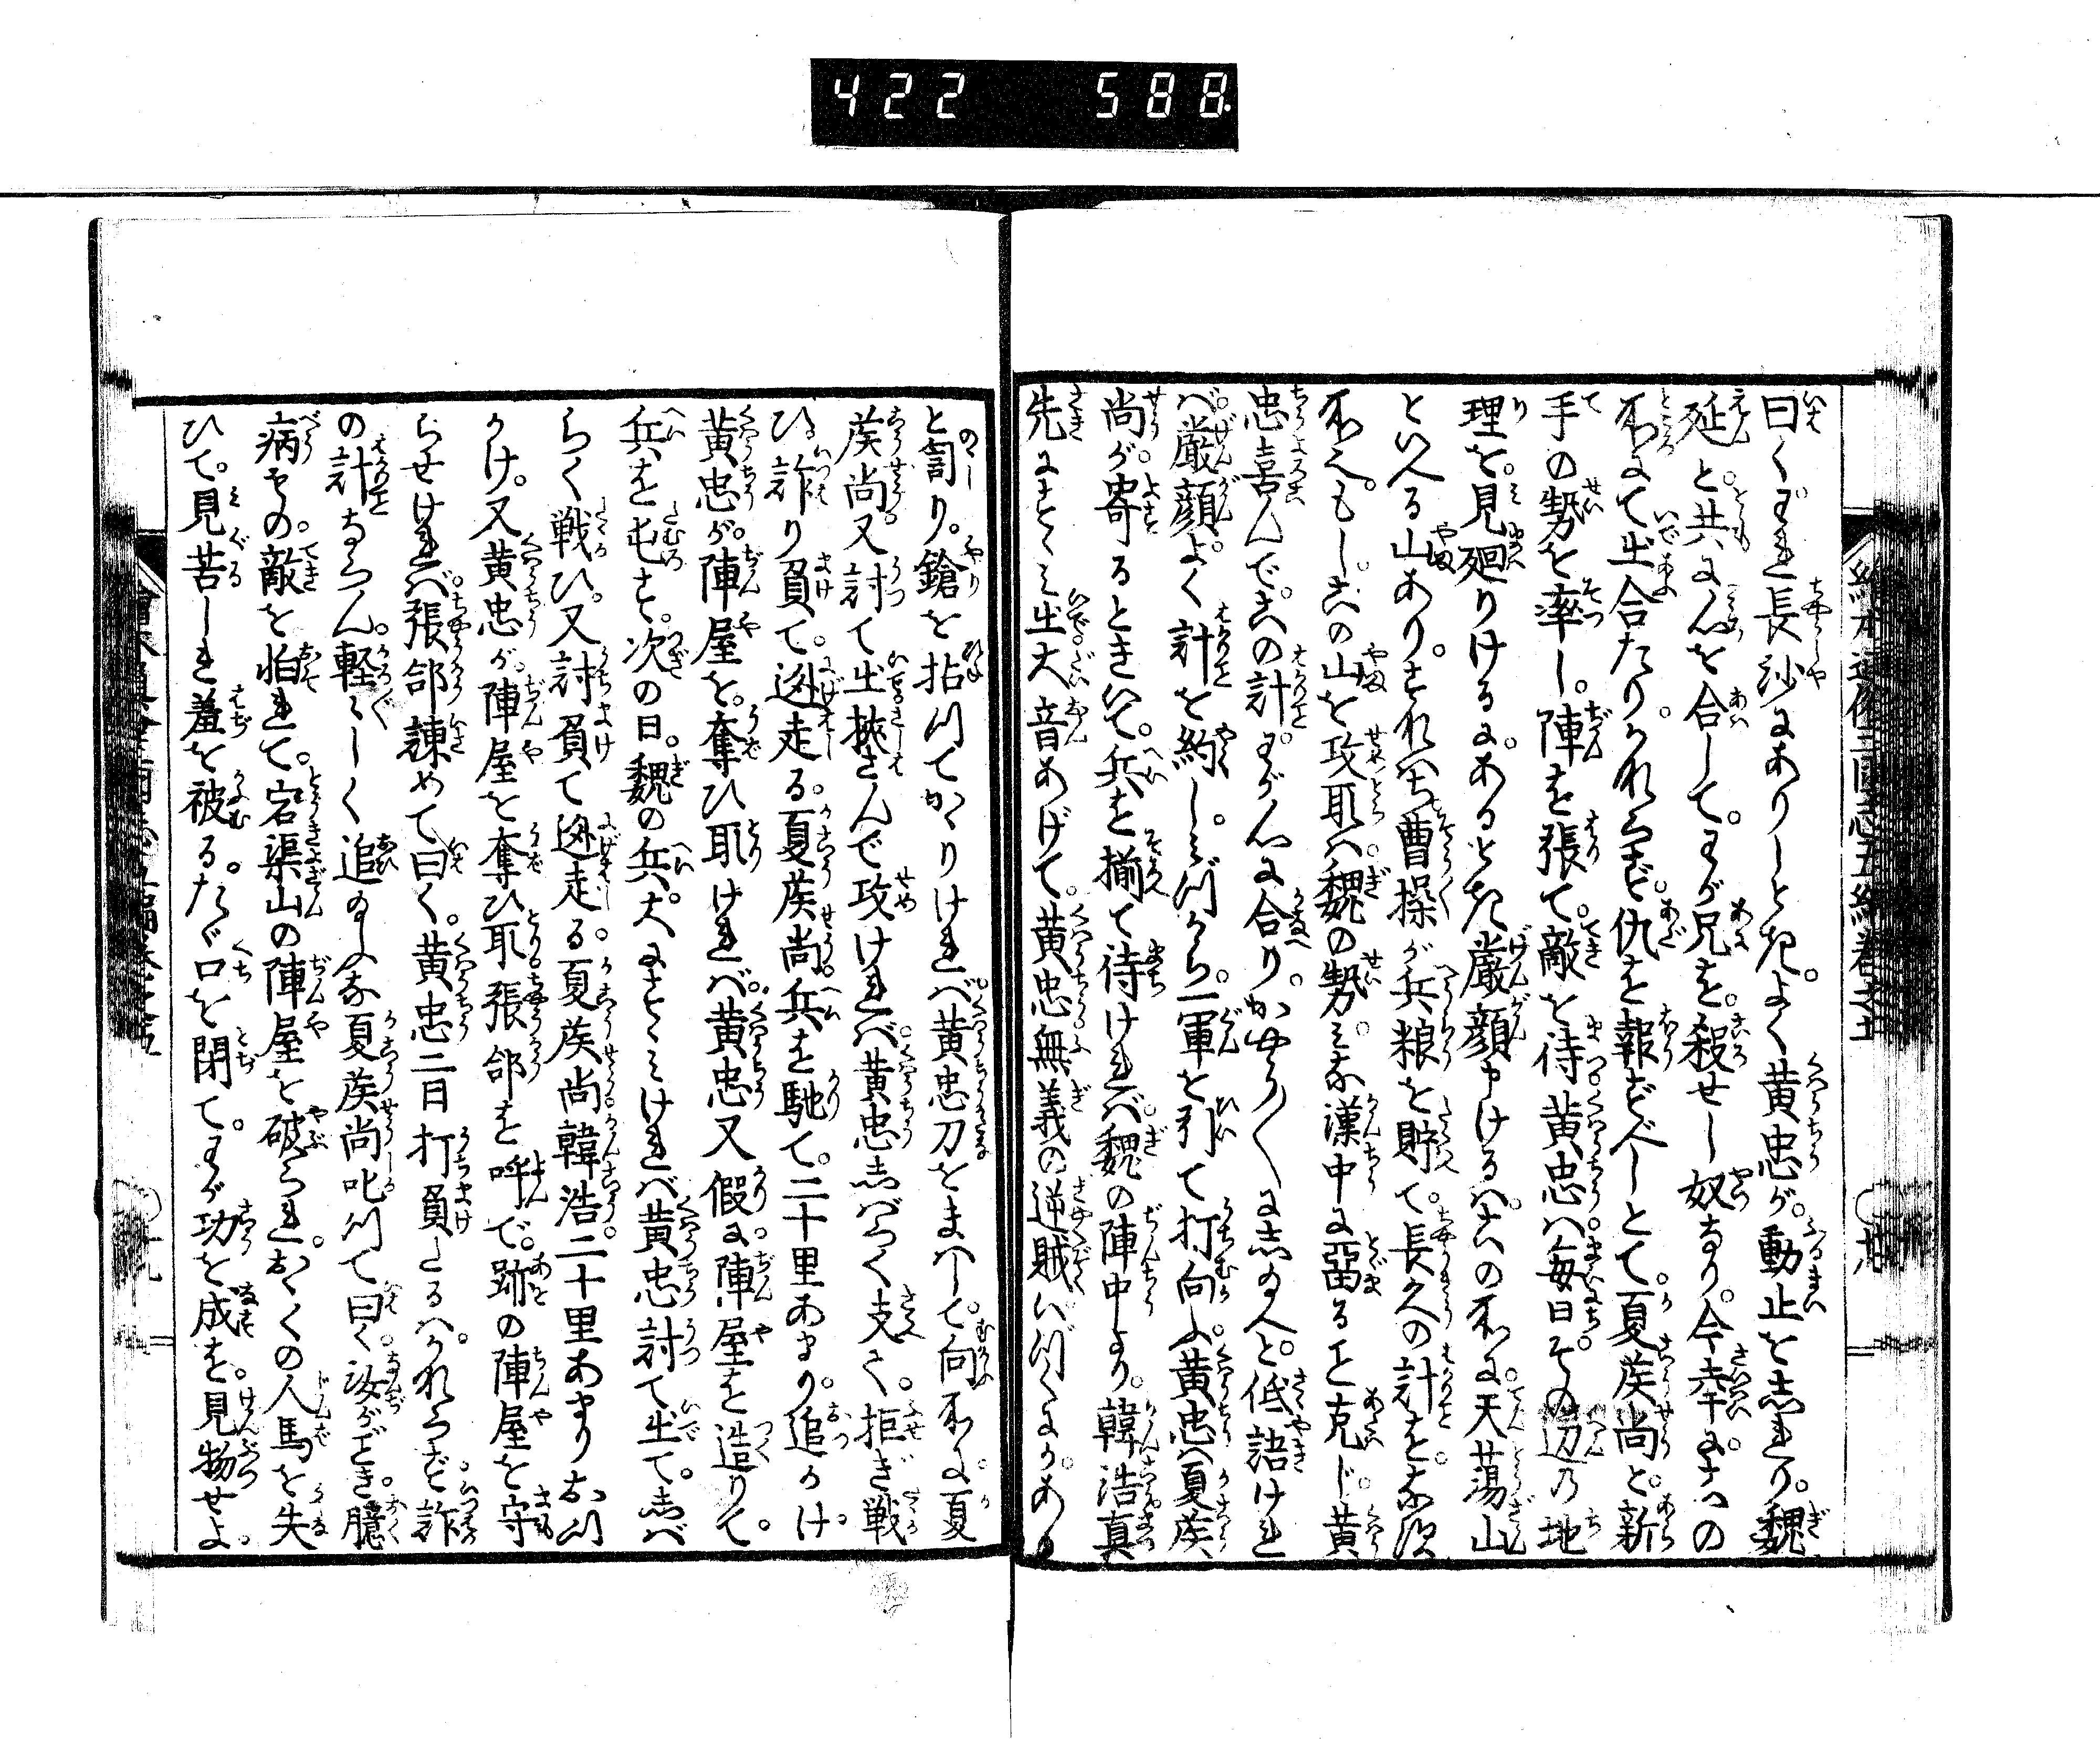 422 588
曰くわれ長沙にありしときよく黄忠が動止をしれり。魏
延と共に心を合して。わが兄を。殺せし奴なり。今幸にこの
所にて出合たり。かれならず。仇を報ずべしとて。夏侯尚と。新
手の勢を率し。陣を張て。敵を待。黄忠ハ毎日。その辺の地
理を。見廻りけるに。あるとき厳顔申けるハ。この所に。天蕩山
といへる山あり。これハ曹操が兵粮を貯て。長久の計をなす
所也。もし。この山を攻取ハ。魏の勢。みな漢中に留ること克じ黄
忠喜んで。この計。わが心に合り。かやう〳〵にしたまへと。低語けれ
バ。厳顔。よく計を約し。みづから。一軍を引て打向ふ。黄忠ハ夏侯
尚が寄るときいて。兵を揃て待けれバ。魏の陣中より。韓浩真
先にすゝみ出大音あげて。黄忠無義の逆賊いづくにかある
と割り。鎗を拈つてかゝりけれバ。黄忠刀をまハして。向所に。夏
侯尚。又討て出挾さんで攻けれバ。黄忠しバらく支て。拒ぎ戦
ひ。詐り負て。迯走る。夏侯尚。兵を馳て。二十里あまり。追かけ。
黄忠が。陣屋を。奪ひ取けれバ。黄忠又假に。陣屋を造りて。
兵を屯す。次の日。魏の兵。大にすゝみけれバ黄忠討て出て。しバ
らく戦ひ。又討負て迯走る。夏侯尚韓浩。二十里あまりおつ
かけ。又黄忠が陣屋を奪ひ取。張郃を呼で。跡の陣屋を守
らせけれバ。張郃諌めて曰く。黄忠二日打負たるハ。かならず詐
の計ならん。軽々しく追たまふな夏侯尚叱つて曰く。汝がごとき。臆
病もの。敵を怕れて。宕渠山の陣屋を破られ。おゝくの人馬を失
ひて。見苦しき羞を被る。たゞ口を閉て。わが功を成を。見物せよ。